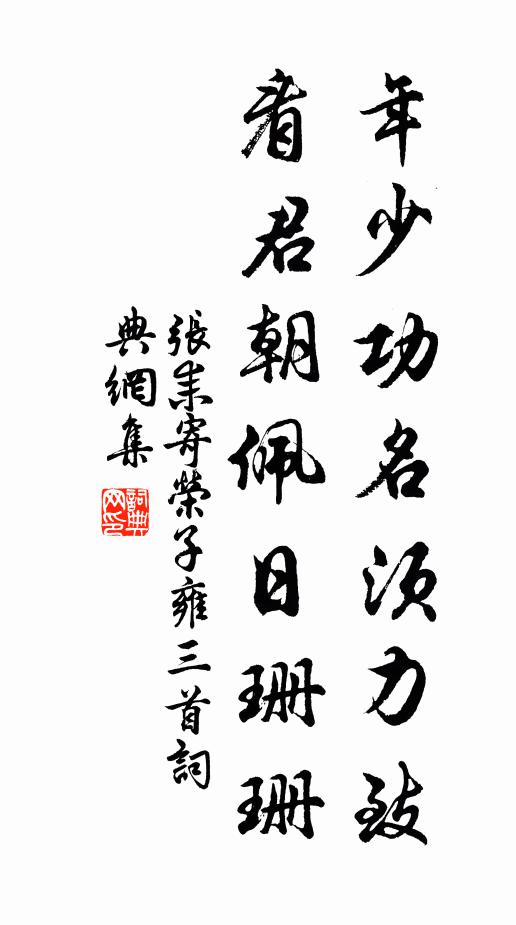 年少功名須力致
看君朝佩日珊珊
張耒寄榮子雍三首詞
典網集
詞典
网印